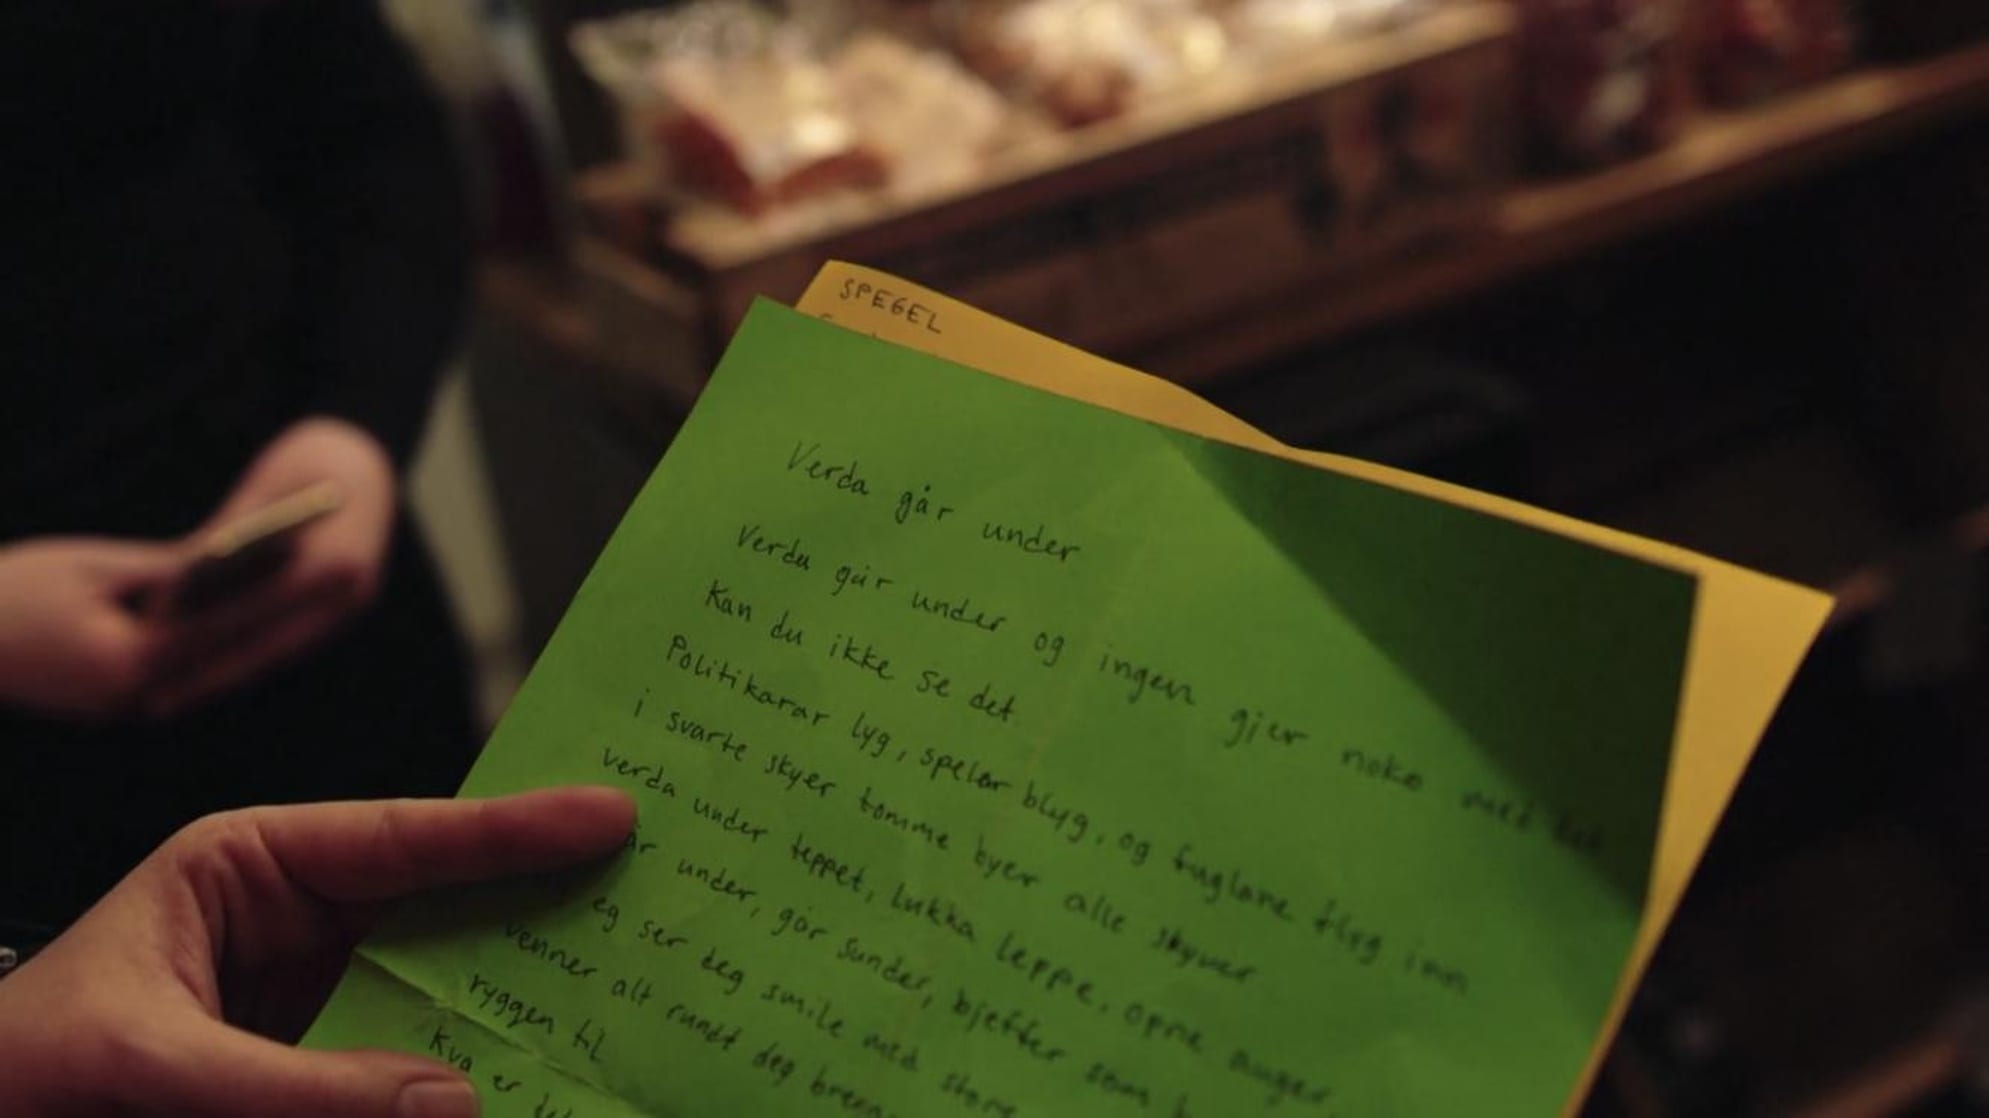 SPEGEL
Verda går under
Verda går under og ingen gjer noko med det
Kan du ikke se det.
Politikarar lyg, spelar blyg, og fuglane flyg inn
i svarte skyer tomme byer alle skyver
verda under teppet, lukka leppe, opne auger,
går under, går sunder, bjeffer som
eg ser deg smile med store
venner alt rundt deg
ryggen til
Kva er det